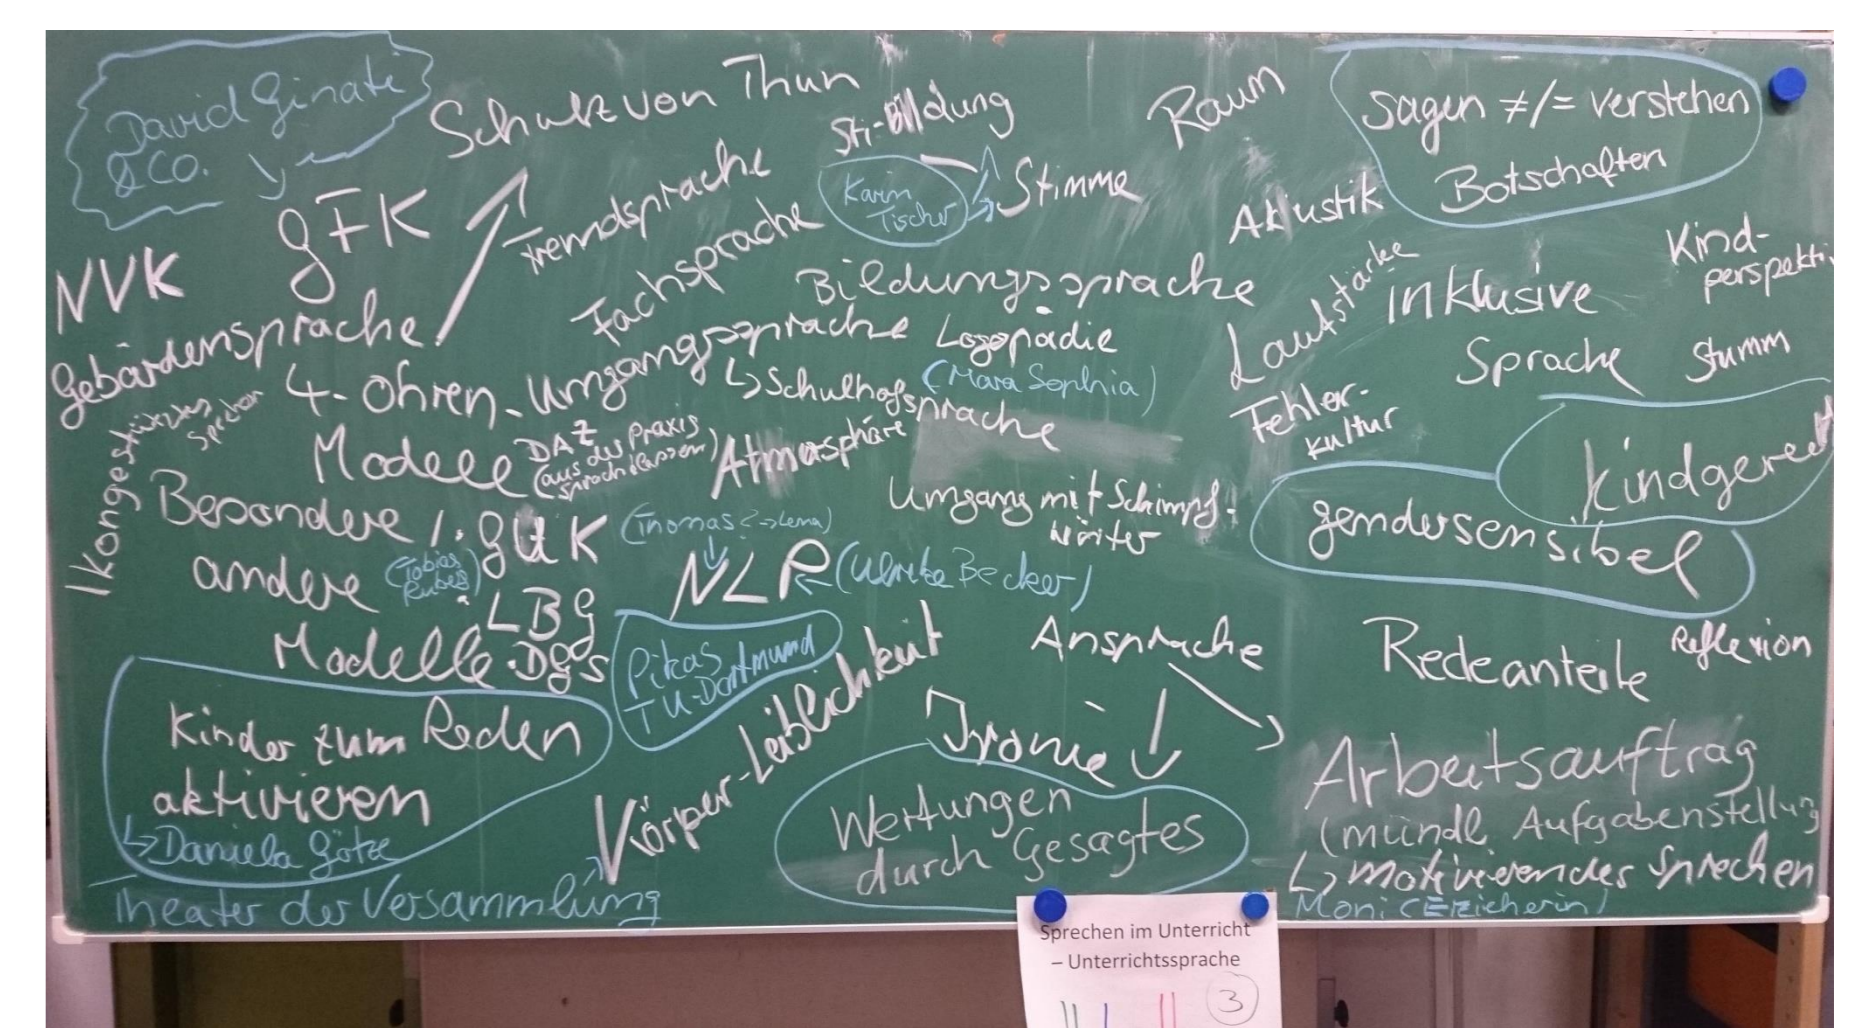 David Ginati
& Co.
Schulz von Thun
Sti-Bildung
Raum
Sagen ≠/= verstehen
Botschaften
GFK
Fremdsprache
Karin
Tischer
Stimme
Akustik
NVK
Fachsprache
Bildungssprache
Lautstärke
Inklusive
Sprache
Kind-
perspekti
Gebärdensprache
Umgangssprache
Logopädie
(Mara Sophia)
↳ Schulhofsprache
stumm
4-Ohren-
Modell
DAZ
(aus der Praxis
Sprachklassen)
Atmosphäre
Fehler-
kultur
kindgerecht
Ikongestütztes
Sprechen
Besondere /
andere
Modelle
(Tobias
Rubes)
• GUK
• LBG
• DGS
(Thomas? → Lena)
NLP
(Ulrike Becker)
Umgang mit Schimpf-
wörter
gendersensibel
Pikas
TU-Dortmund
Körper-Leiblichkeit
Ansprache
Redeanteile
Reflexion
Kinder zum Reden
aktivieren
↳ Daniela Götze
Ironie
Wertungen
durch Gesagtes
Arbeitsauftrag
(mündl. Aufgabenstellung
↳ motivierendes Sprechen
Moni (Erzieherin)
Theater der Versammlung
Sprechen im Unterricht
– Unterrichtssprache
3